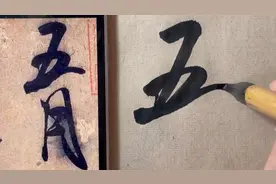 五月
五